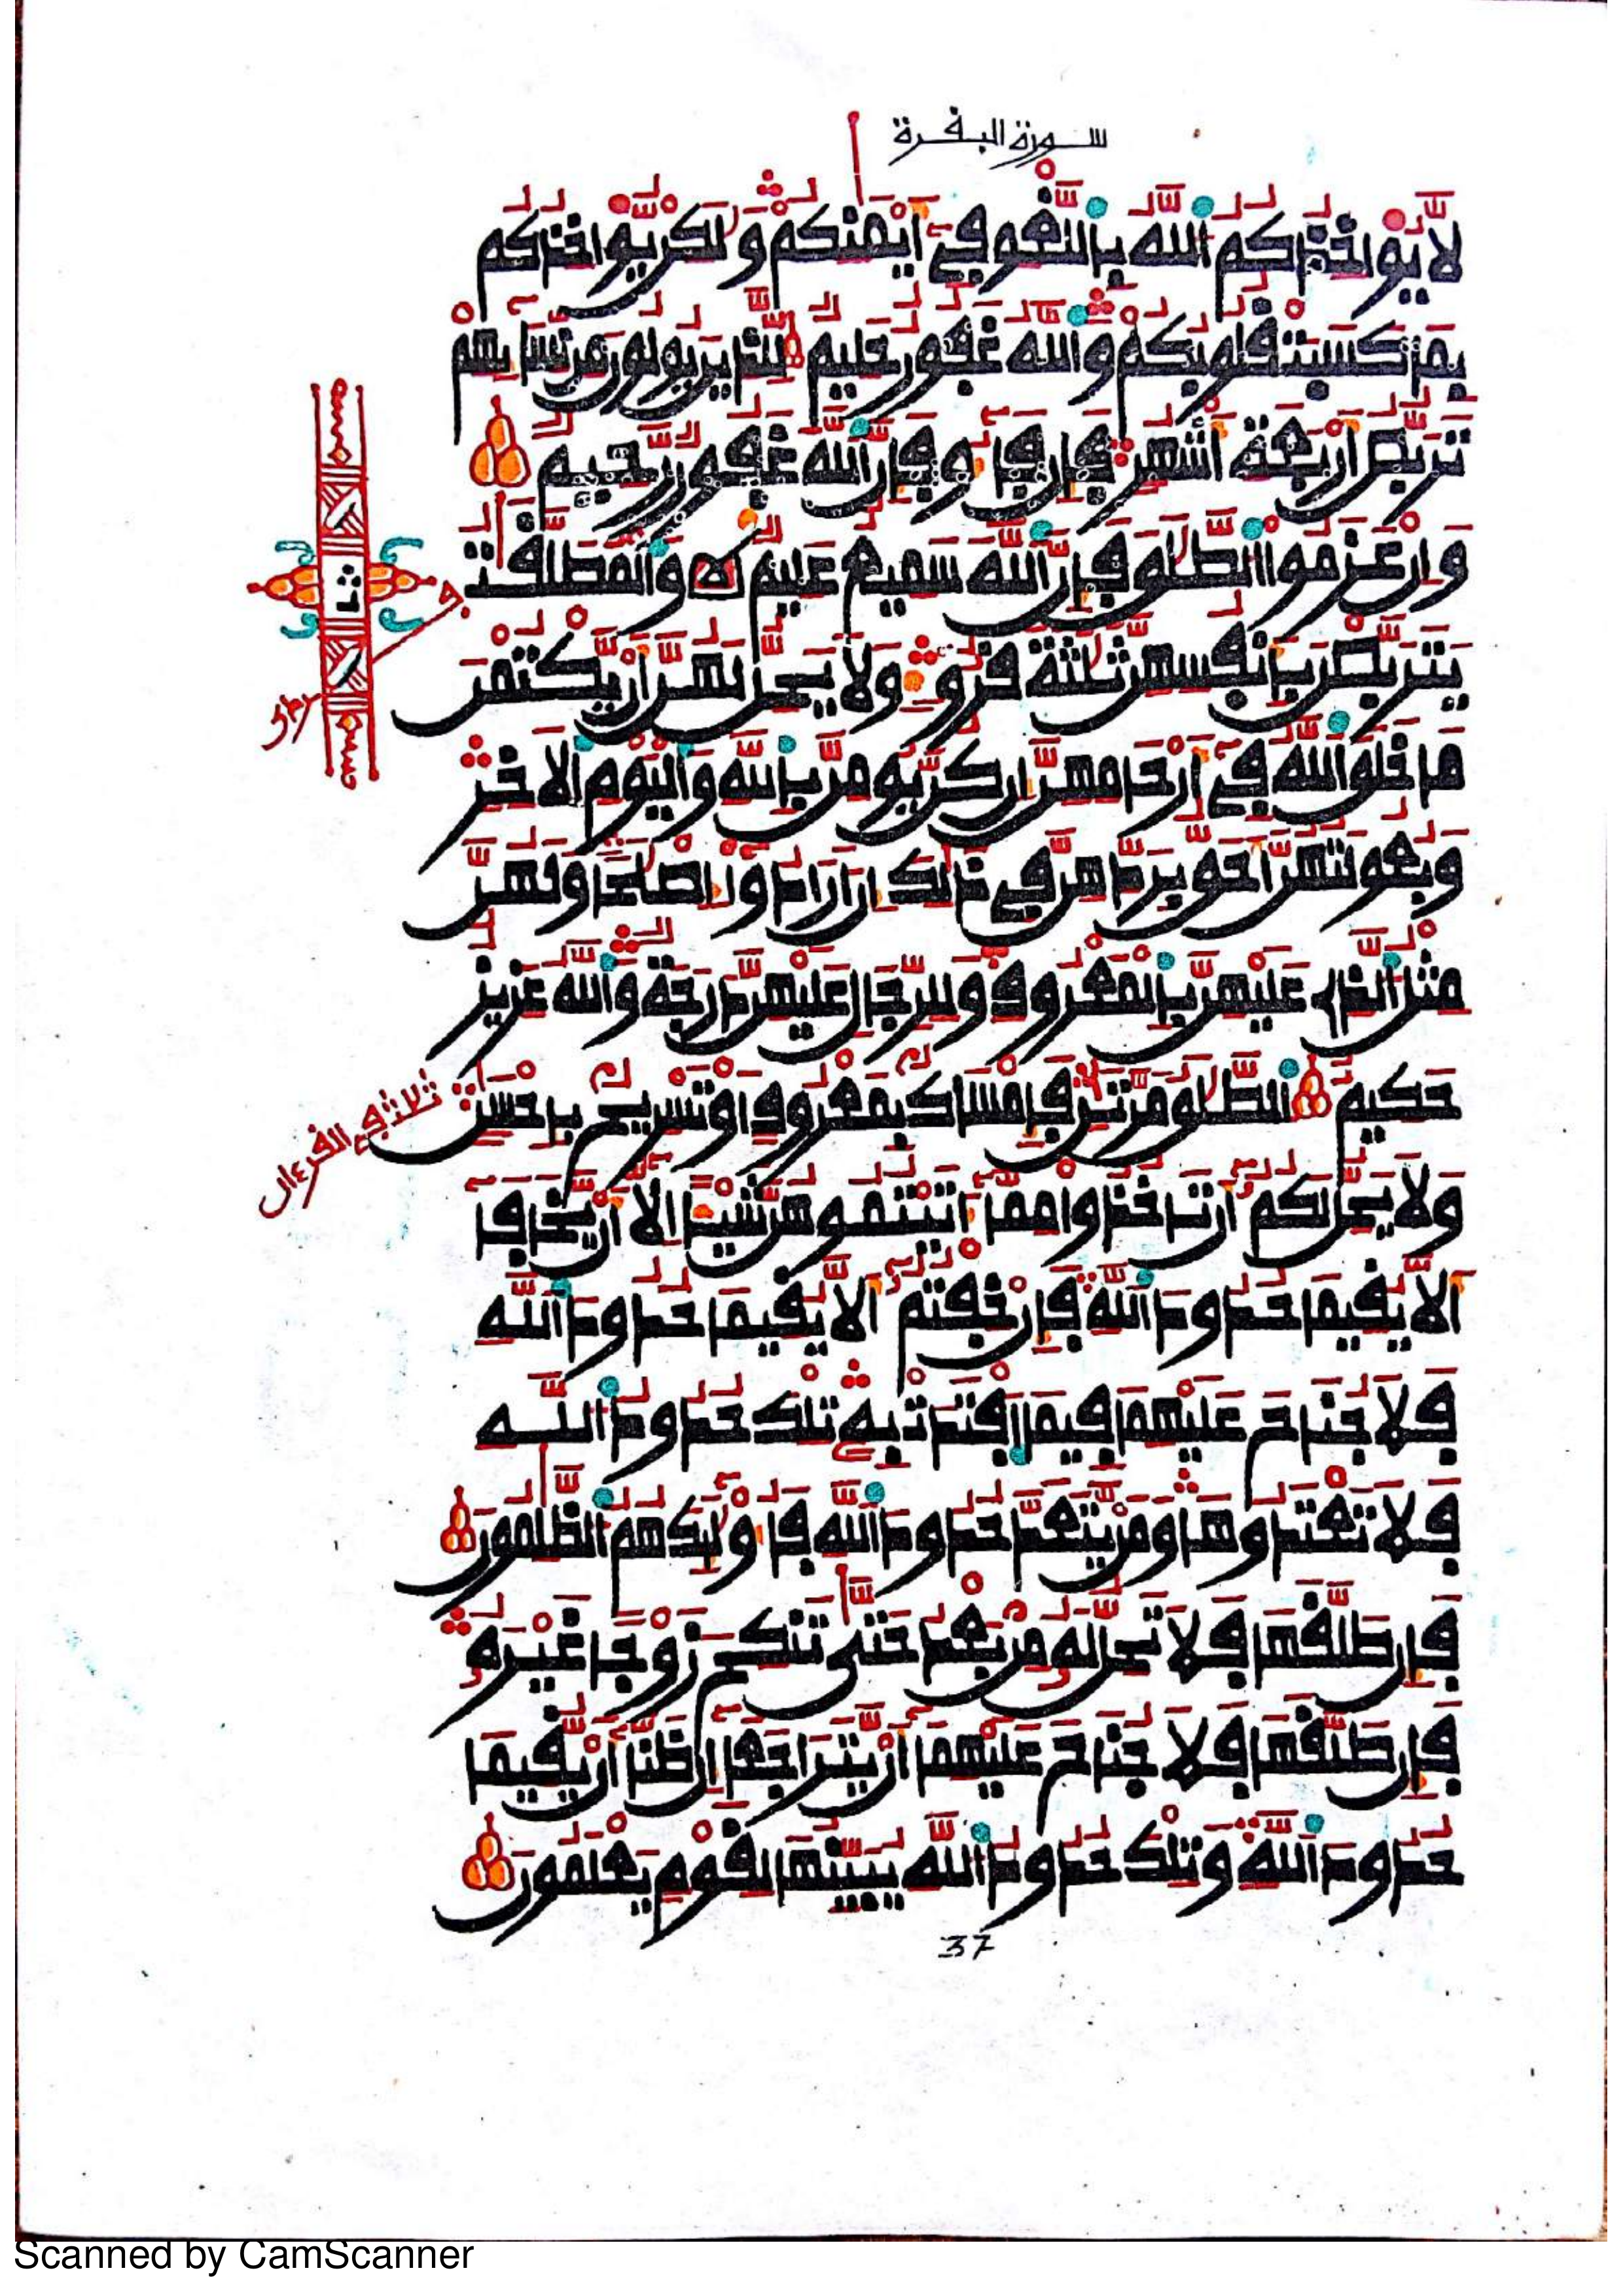 سورة البقرة
لَّا يُوَاخِذُكُمُ اللَّهُ بِاللَّغْوِ فِي أَيْمَٰنِكُمْ وَلَٰكِن يُّوَاخِذُكُم
بِمَا كَسَبَتْ قُلُوبُكُمْ وَاللَّهُ غَفُورٌ حَلِيمٌ لِّلَّذِينَ يُولُونَ مِن نِّسَائِهِمْ
تَرَبُّصُ أَرْبَعَةِ أَشْهُرٍ فَإِن فَاءُو فَإِنَّ اللَّهَ غَفُورٌ رَّحِيمٌ
وَإِنْ عَزَمُوا الطَّلَٰقَ فَإِنَّ اللَّهَ سَمِيعٌ عَلِيمٌ وَالْمُطَلَّقَٰتُ
يَتَرَبَّصْنَ بِأَنفُسِهِنَّ ثَلَٰثَةَ قُرُوءٍ وَلَا يَحِلُّ لَهُنَّ أَن يَّكْتُمْنَ
مَا خَلَقَ اللَّهُ فِي أَرْحَامِهِنَّ إِن كُنَّ يُومِنَّ بِاللَّهِ وَالْيَوْمِ الْآخِرِ
وَبُعُولَتُهُنَّ أَحَقُّ بِرَدِّهِنَّ فِي ذَٰلِكَ إِنْ أَرَادُوا إِصْلَٰحًا وَلَهُنَّ
مِثْلُ الَّذِي عَلَيْهِنَّ بِالْمَعْرُوفِ وَلِلرِّجَالِ عَلَيْهِنَّ دَرَجَةٌ وَاللَّهُ عَزِيزٌ
حَكِيمٌ الطَّلَٰقُ مَرَّتَٰنِ فَإِمْسَاكٌ بِمَعْرُوفٍ أَوْ تَسْرِيحٌ بِإِحْسَٰنٍ
ثلاث في القرءان
وَلَا يَحِلُّ لَكُمْ أَن تَاخُذُوا مِمَّا آتَيْتُمُوهُنَّ شَيْئًا إِلَّا أَن يَّخَافَا
أَلَّا يُقِيمَا حُدُودَ اللَّهِ فَإِنْ خِفْتُمْ أَلَّا يُقِيمَا حُدُودَ اللَّهِ
فَلَا جُنَاحَ عَلَيْهِمَا فِيمَا افْتَدَتْ بِهِ تِلْكَ حُدُودُ اللَّهِ
فَلَا تَعْتَدُوهَا وَمَن يَّتَعَدَّ حُدُودَ اللَّهِ فَأُولَٰئِكَ هُمُ الظَّٰلِمُونَ
فَإِن طَلَّقَهَا فَلَا تَحِلُّ لَهُ مِن بَعْدُ حَتَّىٰ تَنكِحَ زَوْجًا غَيْرَهُ
فَإِن طَلَّقَهَا فَلَا جُنَاحَ عَلَيْهِمَا أَن يَّتَرَاجَعَا إِن ظَنَّا أَن يُّقِيمَا
حُدُودَ اللَّهِ وَتِلْكَ حُدُودُ اللَّهِ يُبَيِّنُهَا لِقَوْمٍ يَعْلَمُونَ
37
Scanned by CamScanner